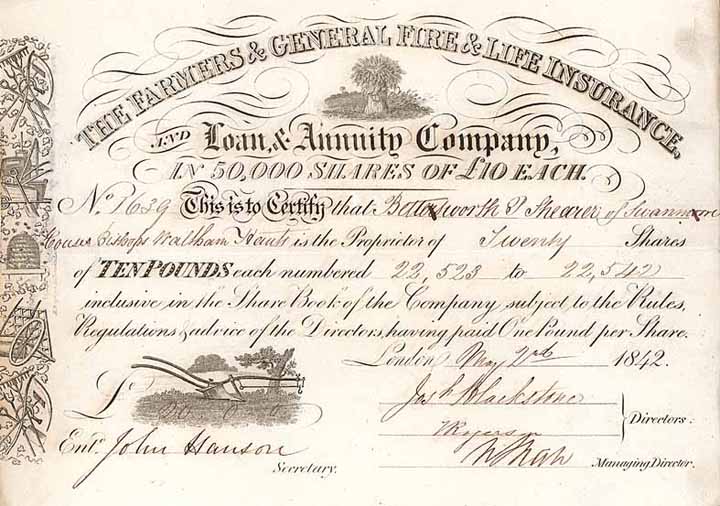 THE FARMERS & GENERAL FIRE & LIFE INSURANCE,
AND Loan, & Annuity Company,
IN 50,000 SHARES OF £10 EACH.
No. 1639 This is to Certify that Bettesworth P Shearer of Swanmore
House Bishops Waltham Hants is the Proprietor of Twenty Shares
of TEN POUNDS each numbered 22,523 to 22,542
inclusive in the "Share Book" of the Company, subject to the Rules,
Regulations & advice of the Directors, having paid One Pound per Share.
London May 2nd 1842.
£20
Josh Blackstone
Directors:
Entd. John Hanson
Secretary.
Managing Director.